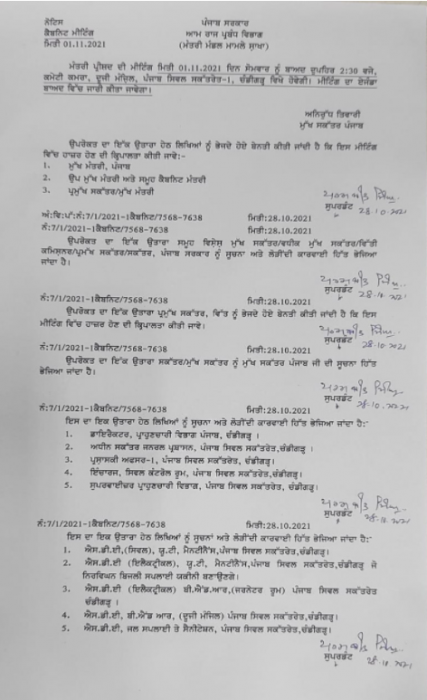 ਨੋਟਿਸ
ਪੰਜਾਬ ਸਰਕਾਰ
ਕੈਬਨਿਟ ਮੀਟਿੰਗ
ਆਮ ਰਾਜ ਪ੍ਰਬੰਧ ਵਿਭਾਗ
ਮਿਤੀ 01.11.2021
(ਮੰਤਰੀ ਮੰਡਲ ਮਾਮਲੇ ਸ਼ਾਖਾ)
ਮੰਤਰੀ ਪ੍ਰੀਸ਼ਦ ਦੀ ਮੀਟਿੰਗ ਮਿਤੀ 01.11.2021 ਦਿਨ ਸੋਮਵਾਰ ਨੂੰ ਬਾਅਦ ਦੁਪਹਿਰ 2:30 ਵਜੇ,
ਕਮੇਟੀ ਕਮਰਾ, ਦੂਜੀ ਮੰਜ਼ਿਲ, ਪੰਜਾਬ ਸਿਵਲ ਸਕੱਤਰੇਤ-1, ਚੰਡੀਗੜ੍ਹ ਵਿਖੇ ਹੋਵੇਗੀ। ਮੀਟਿੰਗ ਦਾ ਏਜੰਡਾ
ਬਾਅਦ ਵਿੱਚ ਜਾਰੀ ਕੀਤਾ ਜਾਵੇਗਾ।
ਅਨਿਰੁੱਧ ਤਿਵਾਰੀ
ਮੁੱਖ ਸਕੱਤਰ ਪੰਜਾਬ
ਉਪਰੋਕਤ ਦਾ ਇੱਕ ਉਤਾਰਾ ਹੇਠ ਲਿਖਿਆਂ ਨੂੰ ਭੇਜਦੇ ਹੋਏ ਬੇਨਤੀ ਕੀਤੀ ਜਾਂਦੀ ਹੈ ਕਿ ਇਸ ਮੀਟਿੰਗ
ਵਿੱਚ ਹਾਜ਼ਰ ਹੋਣ ਦੀ ਕ੍ਰਿਪਾਲਤਾ ਕੀਤੀ ਜਾਵੇ:-
1. ਮੁੱਖ ਮੰਤਰੀ, ਪੰਜਾਬ
2. ਉਪ ਮੁੱਖ ਮੰਤਰੀ ਅਤੇ ਸਮੂਹ ਕੈਬਨਿਟ ਮੰਤਰੀ
3. ਪ੍ਰਮੁੱਖ ਸਕੱਤਰ/ਮੁੱਖ ਮੰਤਰੀ
ਸੁਪਰਡੰਟ 28-10-2021
ਅੰ:ਵਿ:ਪੱ:ਨੰ:7/1/2021-1ਕੈਬਨਿਟ/7568-7638 ਮਿਤੀ:28.10.2021
ਨੰ:7/1/2021-1ਕੈਬਨਿਟ/7568-7638 ਮਿਤੀ:28.10.2021
ਉਪਰੋਕਤ ਦਾ ਇੱਕ ਉਤਾਰਾ ਸਮੂਹ ਵਿਸ਼ੇਸ਼ ਮੁੱਖ ਸਕੱਤਰ/ਵਧੀਕ ਮੁੱਖ ਸਕੱਤਰ/ਵਿੱਤੀ
ਕਮਿਸ਼ਨਰ/ਪ੍ਰਮੁੱਖ ਸਕੱਤਰ/ਸਕੱਤਰ, ਪੰਜਾਬ ਸਰਕਾਰ ਨੂੰ ਸੂਚਨਾ ਅਤੇ ਲੋੜੀਂਦੀ ਕਾਰਵਾਈ ਹਿੱਤ ਭੇਜਿਆ
ਜਾਂਦਾ ਹੈ।
ਸੁਪਰਡੰਟ 28-10-2021
ਨੰ:7/1/2021-1ਕੈਬਨਿਟ/7568-7638 ਮਿਤੀ:28.10.2021
ਉਪਰੋਕਤ ਦਾ ਇੱਕ ਉਤਾਰਾ ਪ੍ਰਮੁੱਖ ਸਕੱਤਰ, ਵਿੱਤ ਨੂੰ ਭੇਜਦੇ ਹੋਏ ਬੇਨਤੀ ਕੀਤੀ ਜਾਂਦੀ ਹੈ ਕਿ ਇਸ
ਮੀਟਿੰਗ ਵਿੱਚ ਹਾਜ਼ਰ ਹੋਣ ਦੀ ਕ੍ਰਿਪਾਲਤਾ ਕੀਤੀ ਜਾਵੇ।
ਸੁਪਰਡੰਟ 28-10-2021
ਨੰ:7/1/2021-1ਕੈਬਨਿਟ/7568-7638 ਮਿਤੀ:28.10.2021
ਉਪਰੋਕਤ ਦਾ ਇੱਕ ਉਤਾਰਾ ਸਕੱਤਰ/ਮੁੱਖ ਸਕੱਤਰ ਨੂੰ ਮੁੱਖ ਸਕੱਤਰ, ਪੰਜਾਬ ਜੀ ਦੀ ਸੂਚਨਾ ਹਿੱਤ
ਭੇਜਿਆ ਜਾਂਦਾ ਹੈ।
ਸੁਪਰਡੰਟ 28-10-2021
ਨੰ:7/1/2021-1ਕੈਬਨਿਟ/7568-7638 ਮਿਤੀ:28.10.2021
ਇਸ ਦਾ ਇਕ ਉਤਾਰਾ ਹੇਠ ਲਿਖਿਆਂ ਨੂੰ ਸੂਚਨਾ ਅਤੇ ਲੋੜੀਂਦੀ ਕਾਰਵਾਈ ਹਿੱਤ ਭੇਜਿਆ ਜਾਂਦਾ ਹੈ:-
1. ਡਾਇਰੈਕਟਰ, ਪ੍ਰਾਹੁਣਚਾਰੀ ਵਿਭਾਗ ਪੰਜਾਬ, ਚੰਡੀਗੜ੍ਹ।
2. ਅਧੀਨ ਸਕੱਤਰ ਜਨਰਲ ਪ੍ਰਸ਼ਾਸਨ, ਪੰਜਾਬ ਸਿਵਲ ਸਕੱਤਰੇਤ,ਚੰਡੀਗੜ੍ਹ।
3. ਪ੍ਰਸ਼ਾਸਕੀ ਅਫਸਰ-1, ਪੰਜਾਬ ਸਿਵਲ ਸਕੱਤਰੇਤ, ਚੰਡੀਗੜ੍ਹ।
4. ਇੰਚਾਰਜ, ਸਿਵਲ ਕੰਟਰੋਲ ਰੂਮ, ਪੰਜਾਬ ਸਿਵਲ ਸਕੱਤਰੇਤ,ਚੰਡੀਗੜ੍ਹ।
5. ਸੁਪਰਵਾਈਜ਼ਰ ਪ੍ਰਾਹੁਣਚਾਰੀ ਵਿਭਾਗ, ਪੰਜਾਬ ਸਿਵਲ ਸਕੱਤਰੇਤ, ਚੰਡੀਗੜ੍ਹ।
ਸੁਪਰਡੰਟ 28-10-2021
ਨੰ:7/1/2021-1ਕੈਬਨਿਟ/7568-7638 ਮਿਤੀ:28.10.2021
ਇਸ ਦਾ ਇਕ ਉਤਾਰਾ ਹੇਠ ਲਿਖਿਆਂ ਨੂੰ ਸੂਚਨਾਂ ਅਤੇ ਲੋੜੀਂਦੀ ਕਾਰਵਾਈ ਹਿੱਤ ਭੇਜਿਆ ਜਾਂਦਾ ਹੈ:-
1. ਐਸ.ਡੀ.ਈ,(ਸਿਵਲ), ਯੂ.ਟੀ, ਮੈਨਟੀਨੈਂਸ,ਪੰਜਾਬ ਸਿਵਲ ਸਕੱਤਰੇਤ,ਚੰਡੀਗੜ੍ਹ।
2. ਐਸ.ਡੀ.ਈ (ਇਲੈਕਟ੍ਰੀਕਲ), ਯੂ.ਟੀ, ਮੈਨਟੀਨੈਂਸ,ਪੰਜਾਬ ਸਿਵਲ ਸਕੱਤਰੇਤ,ਚੰਡੀਗੜ੍ਹ ਜੋ
ਨਿਰਵਿਘਨ ਬਿਜਲੀ ਸਪਲਾਈ ਯਕੀਨੀ ਬਣਾਉਣਗੇ।
3. ਐਸ.ਡੀ.ਈ (ਇਲੈਕਟ੍ਰੀਕਲ) ਬੀ.ਐਂਡ.ਆਰ,(ਜਰਨੇਟਰ ਰੂਮ) ਪੰਜਾਬ ਸਿਵਲ ਸਕੱਤਰੇਤ
ਚੰਡੀਗੜ੍ਹ ।
4. ਐਸ.ਡੀ.ਈ, ਬੀ.ਐਂਡ ਆਰ, (ਦੂਜੀ ਮੰਜਿਲ) ਪੰਜਾਬ ਸਿਵਲ ਸਕੱਤਰੇਤ,ਚੰਡੀਗੜ੍ਹ।
5. ਐਸ.ਡੀ.ਈ, ਜਲ ਸਪਲਾਈ ਤੇ ਸੈਨੀਟੇਸ਼ਨ, ਪੰਜਾਬ ਸਿਵਲ ਸਕੱਤਰੇਤ,ਚੰਡੀਗੜ੍ਹ।
ਸੁਪਰਡੰਟ 28-10-2021